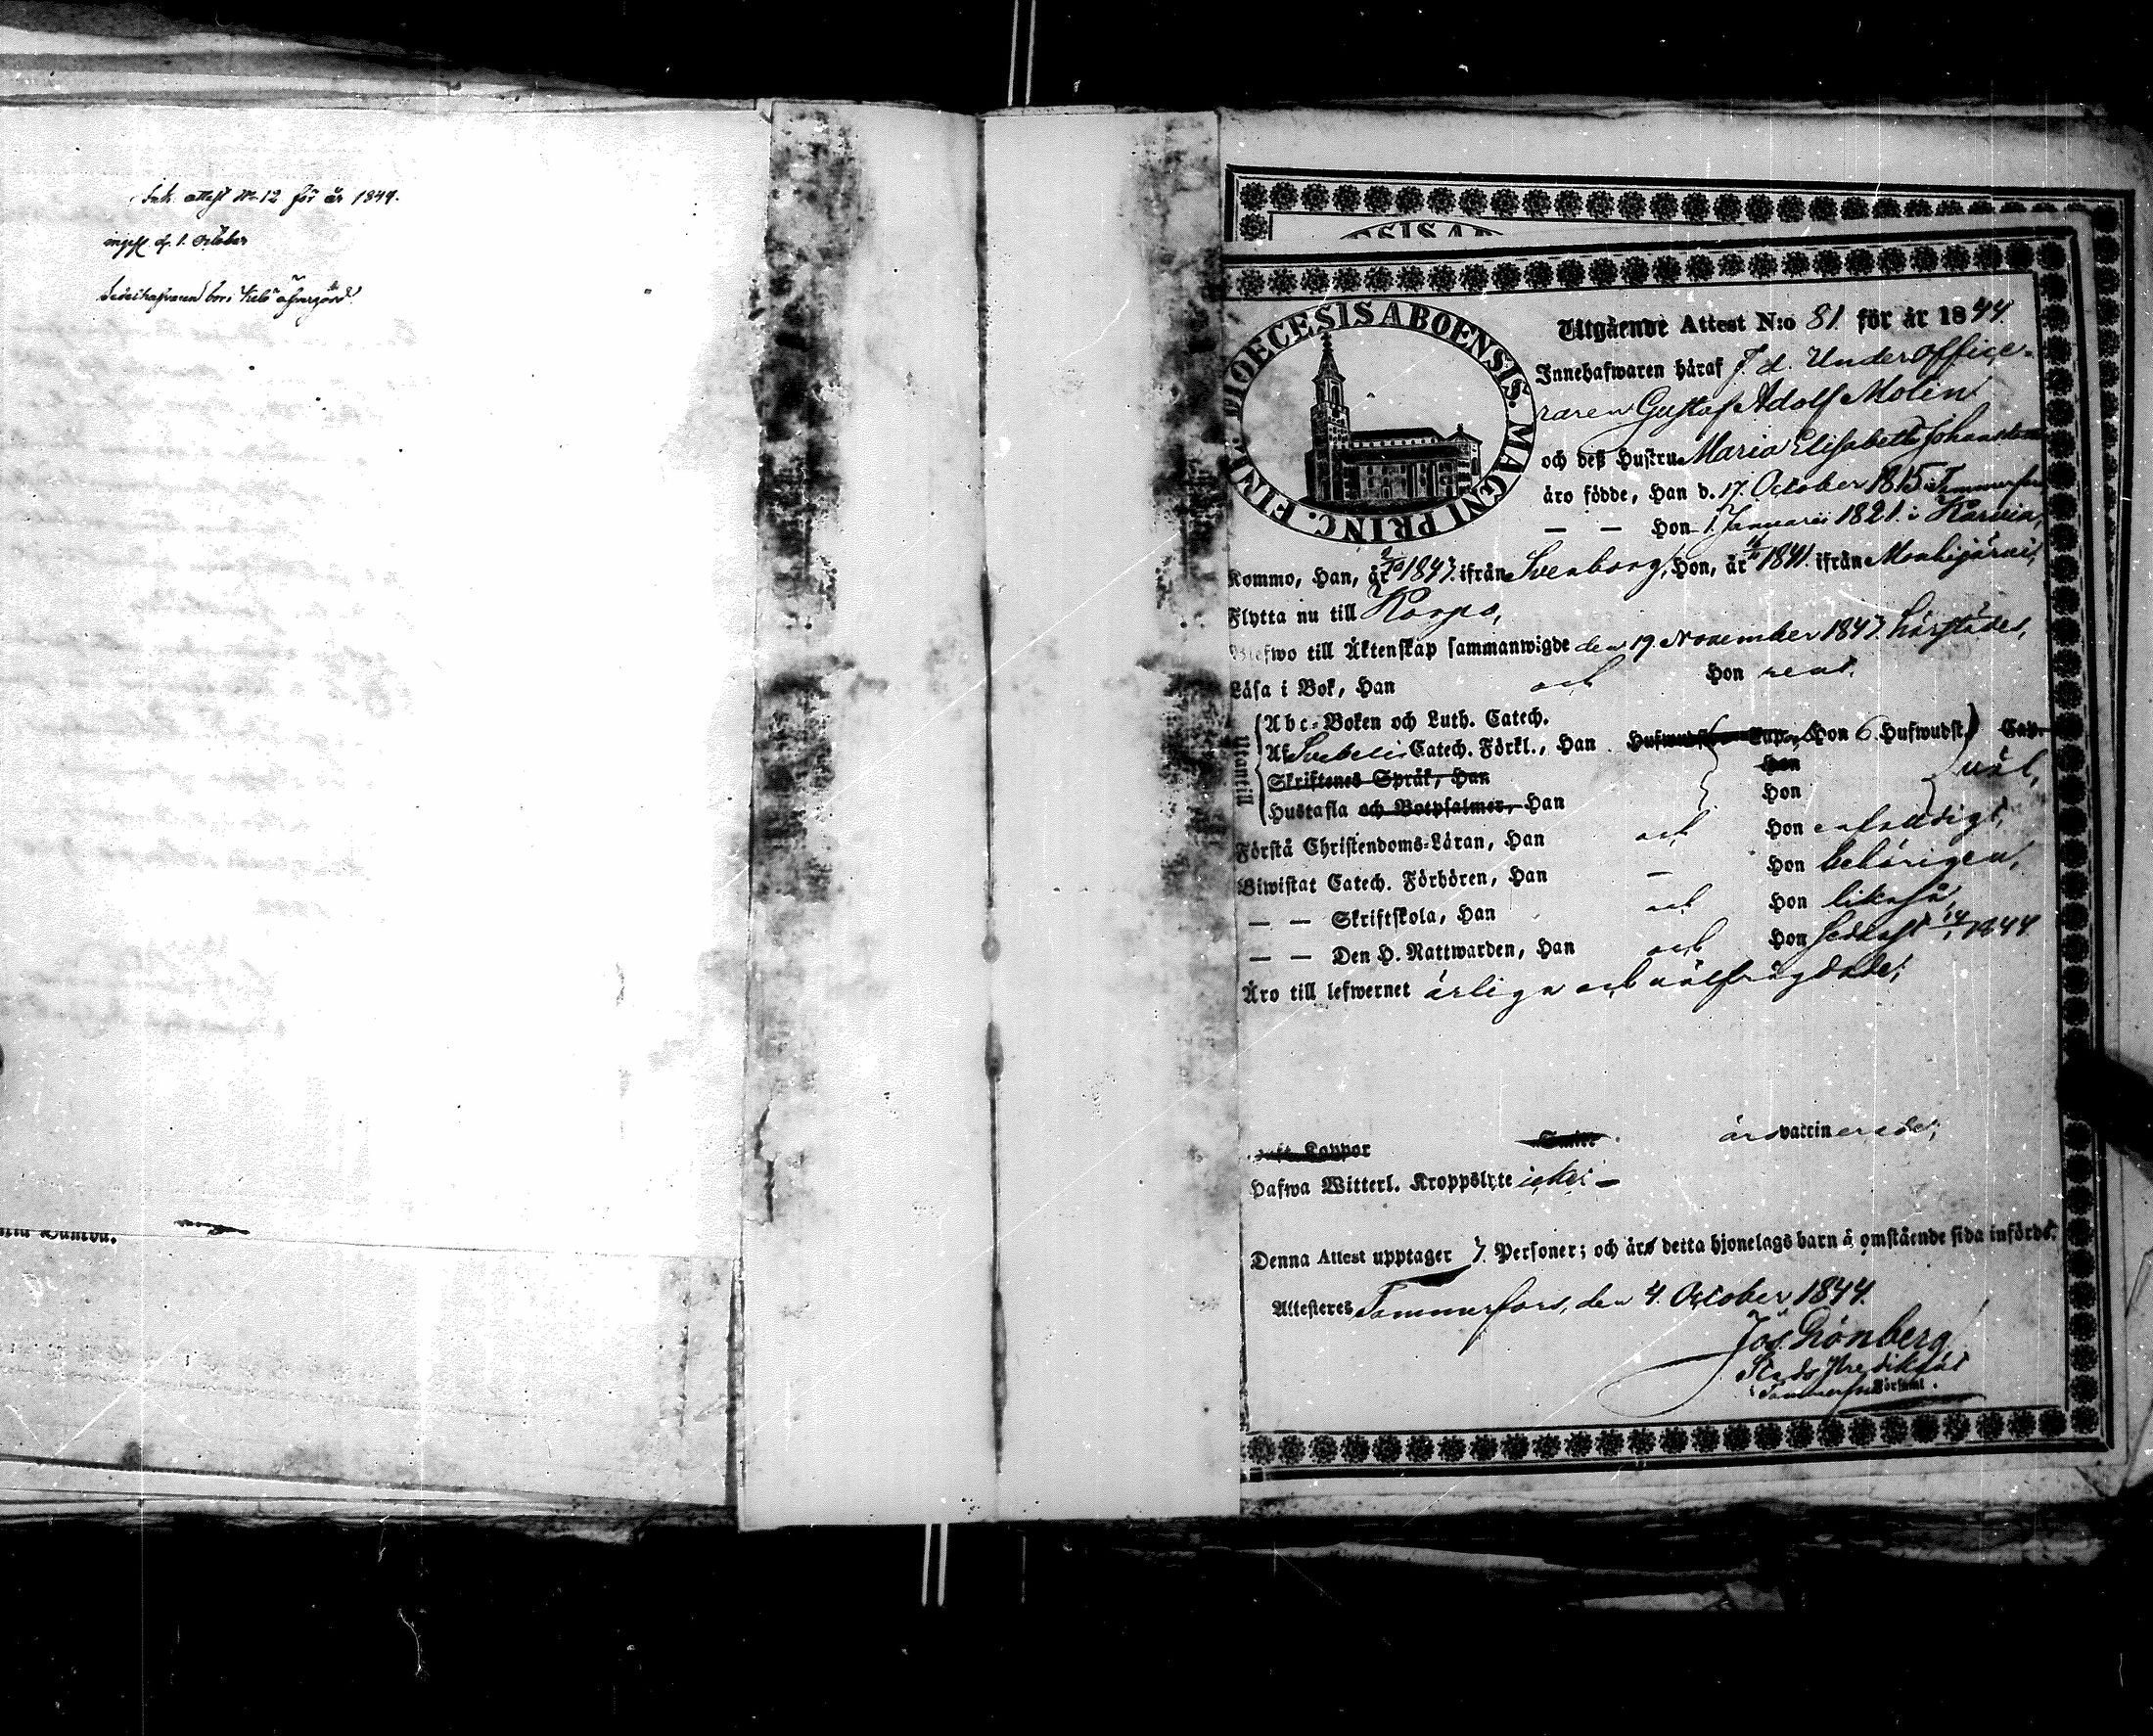 Ink. attest No 12 för år 1844.
d. 1. October
bor i
DIOECESIS ABOENSIS. MAGNI PRINC. FINL.
Utgående Attest N:o 81. för år 1844.
Innehafwaren häraf F. d. Underoffice-
raren Gustaf Adolf Molin
och deß Hustru Maria Elisabeth
äro födde, Han d. 17. October 1815 i Tammerfors
— — Hon 1. Januarii 1821. i Karvia,
Kommo, Han, år 1843. ifrån Sveaborg, Hon, år 1841. ifrån Mouhijärvi,
Flytta nu till Korpo,
Blefwo till Äktenskap sammanwigde den 19. November 1843. härstädes,
Läsa i Bok, Han och Hon rent.
Utantill
Abc-Boken och Luth. Catech.
Af Svebelii Catech. Förkl., Han Hufwudst. Cap. Hon 6 Hufwudst. Cap.
Skriftenes Språk, Han Hon väl,
Hustafla och Botpsalmer, Han Hon
Förstå Christendoms-Läran, Han och Hon enfaldigt,
Biwistat Catech. Förhören, Han — Hon behörigen,
— — Skriftskola, Han och Hon likaså,
— — Den H. Nattwarden, Han och Hon sednast 14/1 1844
Äro till lefwernet ärliga och välfrägdade;
haft Koppor Smitt äro vaccinerade;
Hafwa Witterl. Kroppslyte icke; —
Denna Attest upptager 7. Personer; och äro detta hjonelags barn å omstående sida införde.
Attesteres Tammerfors, den 4. October 1844.
Jos. Grönberg
Stads Predikant
i Tammerfors Församl.